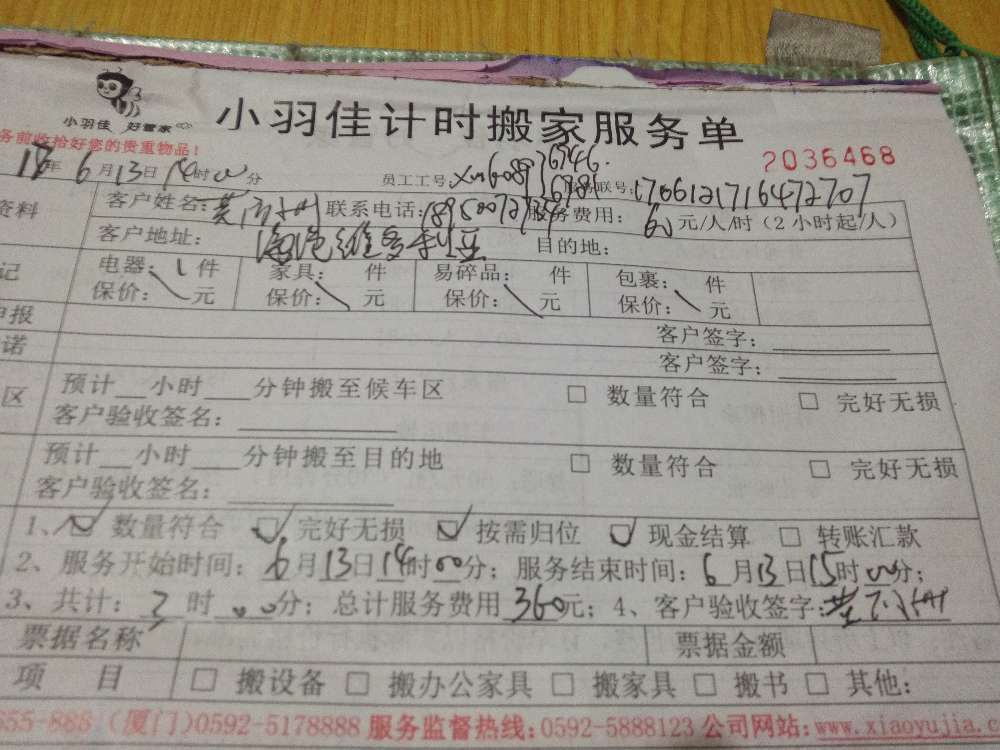 小羽佳 好管家
小羽佳计时搬家服务单
务前收拾好您的贵重物品！
2036468
18年6月13日14时00分 员工工号： 服务联号：1706121716472707
资料 客户姓名： 联系电话： 服务费用：60元/人/时（2小时起/人）
客户地址：海沧维多利亚 目的地：
记 电器：件 家具： 件 易碎品： 件 包裹： 件
保价： 元 保价： 元 保价： 元 保价： 元
申报 客户签字：
诺 客户签字：
区 预计__小时___分钟搬至候车区 □ 数量符合 □ 完好无损
客户验收签名：
预计__小时___分钟搬至目的地 □ 数量符合 □ 完好无损
客户验收签名：
1、☑ 数量符合 ☑ 完好无损 ☑ 按需归位 ☑ 现金结算 □ 转账汇款
2、服务开始时间：6月13日14时00分；服务结束时间：6月13日15时00分；
3、共计： 时00分；总计服务费用360元；4、客户验收签字：
票据名称 票据金额
项 目 □ 搬设备 □ 搬办公家具 □ 搬家具 □ 搬书 □ 其他：
555-888（厦门）0592-5178888 服务监督热线：0592-5888123 公司网站：www.xiaoyujia.c